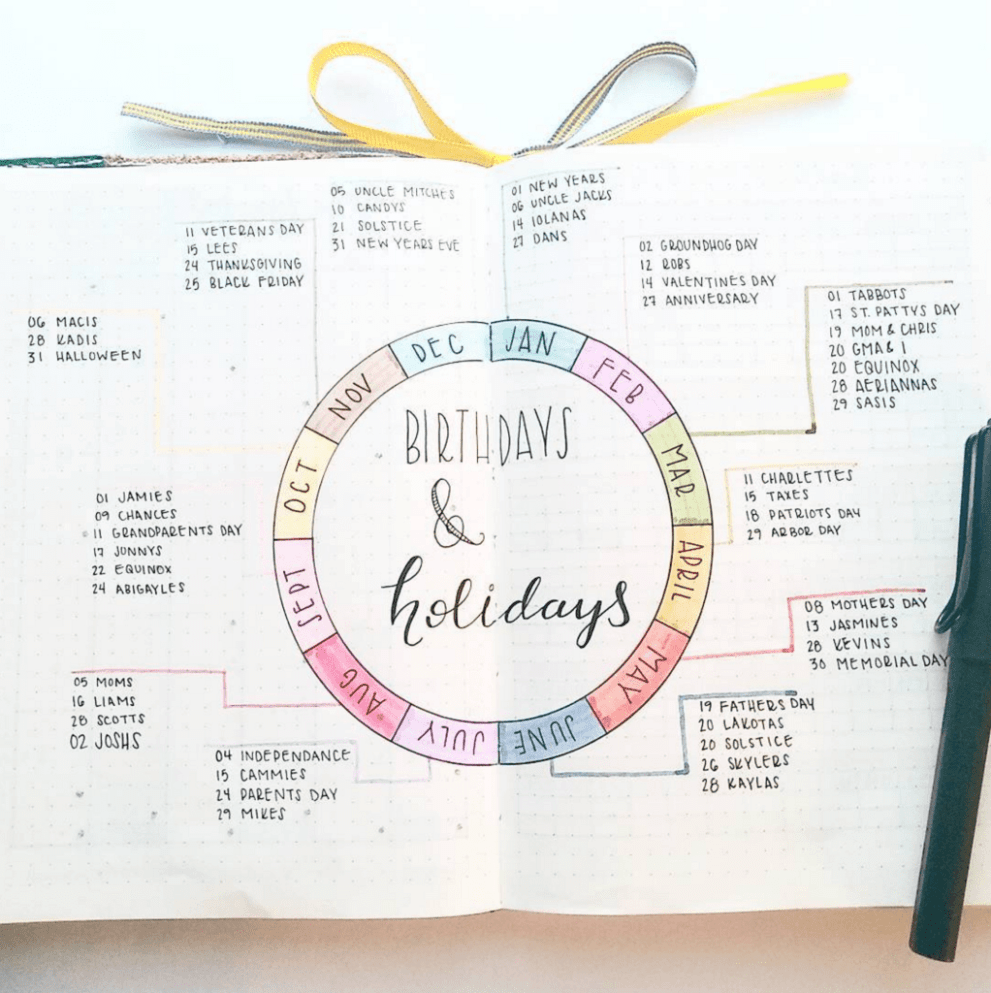 05 UNCLE MITCHES
10 CANDYS
21 SOLSTICE
31 NEW YEARS EVE
01 NEW YEARS
06 UNCLE JACKS
14 IOLANAS
27 DANS
11 VETERANS DAY
15 LEES
24 THANKSGIVING
25 BLACK FRIDAY
02 GROUNDHOG DAY
12 ROBS
14 VALENTINES DAY
27 ANNIVERSARY
06 MACIS
28 KADIS
31 HALLOWEEN
01 TABBOTS
17 ST. PATTYS DAY
19 MOM & CHRIS
20 GMA & I
20 EQUINOX
28 AERIANNAS
29 SASIS
DEC
JAN
FEB
MAR
APRIL
MAY
JUNE
JULY
AUG
SEPT
OCT
NOV
BIRTHDAYS
&
holidays
11 CHARLETTES
15 TAXES
18 PATRIOTS DAY
29 ARBOR DAY
01 JAMIES
09 CHANCES
11 GRANDPARENTS DAY
17 JONNYS
22 EQUINOX
24 ABIGAYLES
08 MOTHERS DAY
13 JASMINES
28 KEVINS
30 MEMORIAL DAY
05 MOMS
16 LIAMS
28 SCOTTS
02 JOSHS
19 FATHERS DAY
20 LAKOTAS
20 SOLSTICE
26 SKYLERS
28 KAYLAS
04 INDEPENDANCE
15 CAMMIES
24 PARENTS DAY
29 MIKES